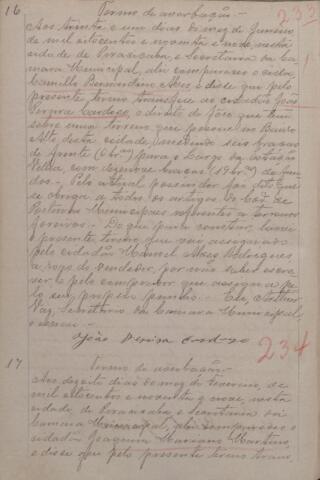 16 Termo de averbação. 233
Aos trinta e um dias do mez de Janeiro
de mil oitocentos e noventa e nove, nesta
cidade de Piracicaba, e Secretaria da Ca
mara Municipal, ahi compareceu o cidadão
Camillo Bernardino Alves, e disse que pelo
presente termo transfere ao cidadão João
Pereira Cardoso, o direito de fôro que tem
sobre um terreno que possue no Bairro
Alto desta cidade, medindo seis braças
de frente (6 br.as) para o Largo da
Velha, com dezenove braças (19 br.as) de fun
dos. Pelo actual possuidor foi dito que
se obriga a todos os artigos do Cod. de
Posturas Municipaes referentes a terrenos
foreiros. Do que para constar, lavrei
o presente termo que vai assignado
pelo cidadão Manoel Alves Rodrigues,
a rogo do vendedor, por não saber escre
ver, e pelo comprador que assigna pe
lo seu proprio punho. Eu, Arthur
Vaz, Secretario da Camara Municipal,
o escrevi.
João Pereira Cardozo
234
17 Termo de averbação.
Aos dezoito dias do mez de Fevereiro, de
mil oitocentos e noventa e nove, nesta
cidade, de Piracicaba, e Secretaria da
Camara Municipal, ahi compareceu o
cidadão Joaquim Mariano Martins,
e disse que pelo presente termo trans